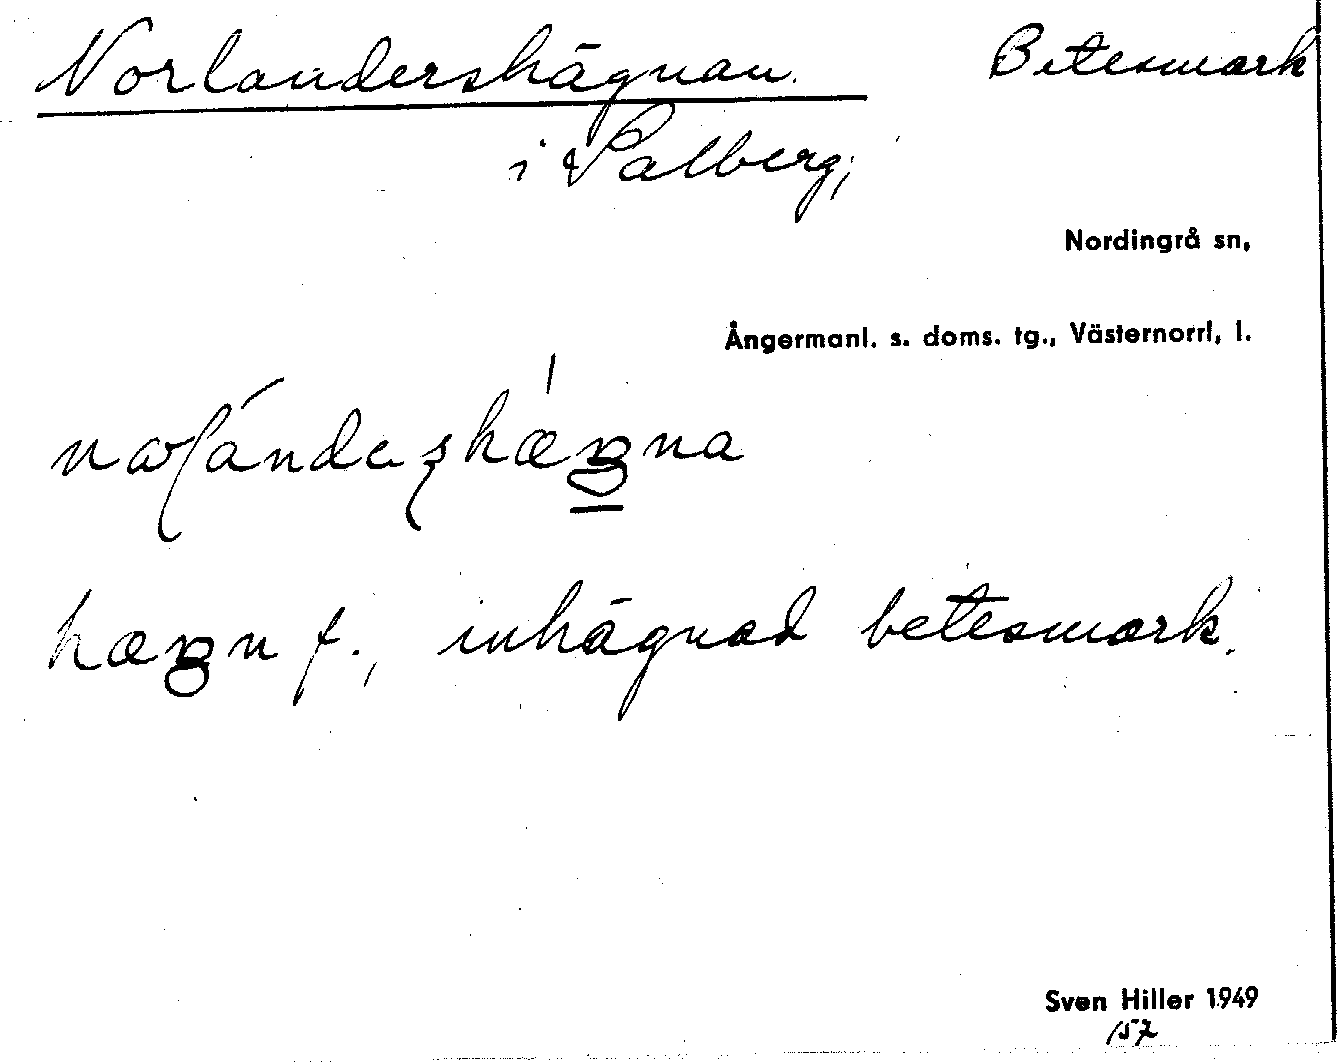 Norlandershägnan. Betesmark
i Salberg,
Nordingrå sn,
Ångermanl. s. doms. tg., Västernorrl, l.
hægn f., inhägnad betesmark.
Sven Hiller 1949
157